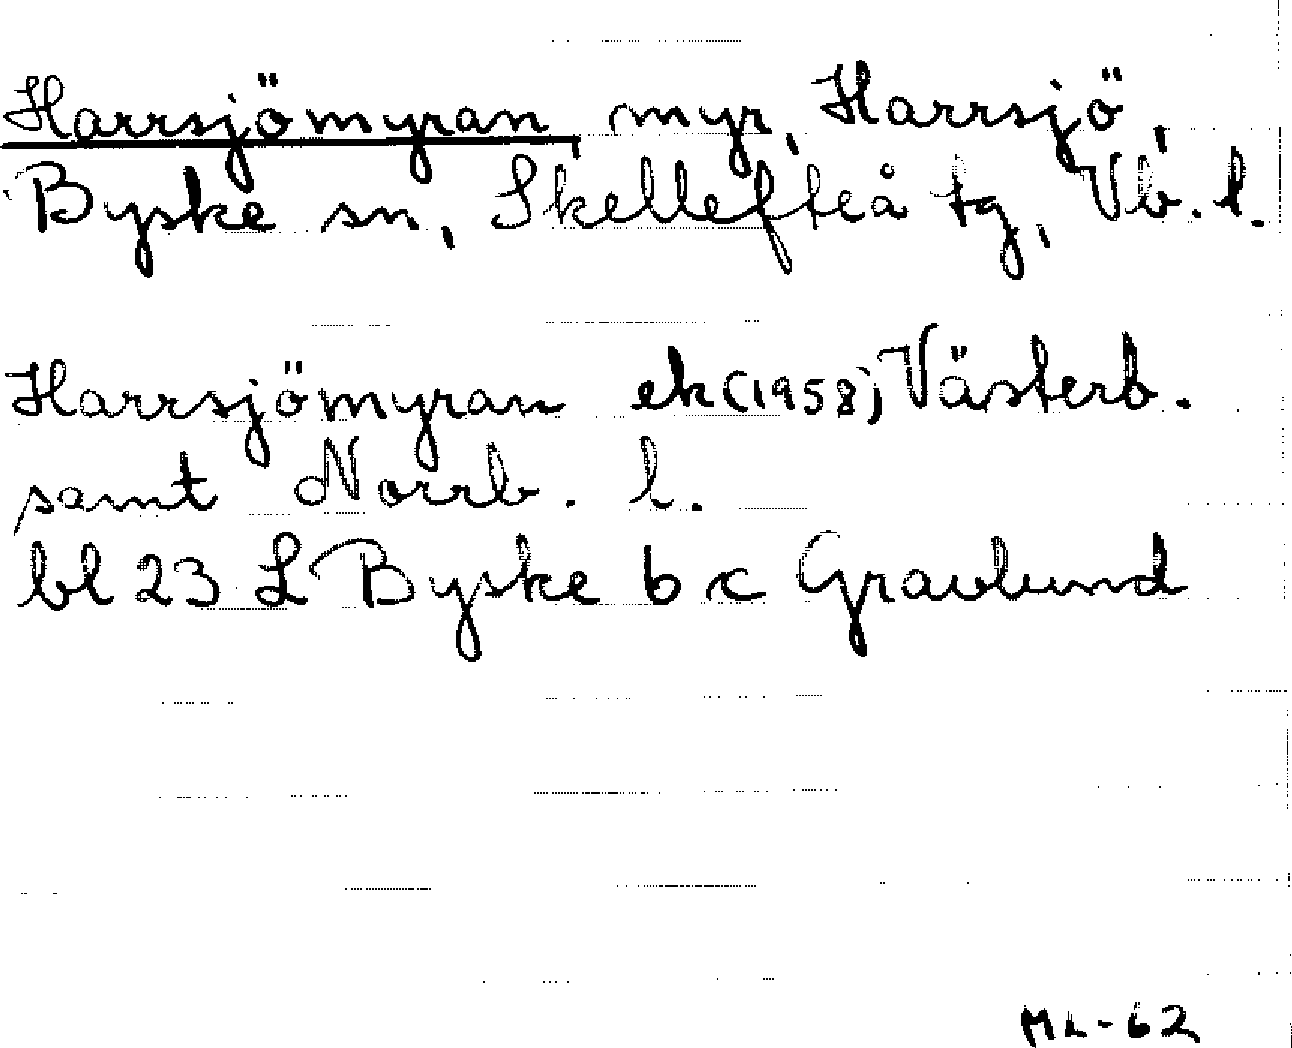 Harrsjömyran, myr, Harrsjö,
Byske sn, Skellefteå tg, Vb. l.
Harrsjömyran ek (1958) Västerb.
samt Norrb. l.
bl 23 L Byske b c Gravlund
ML-62